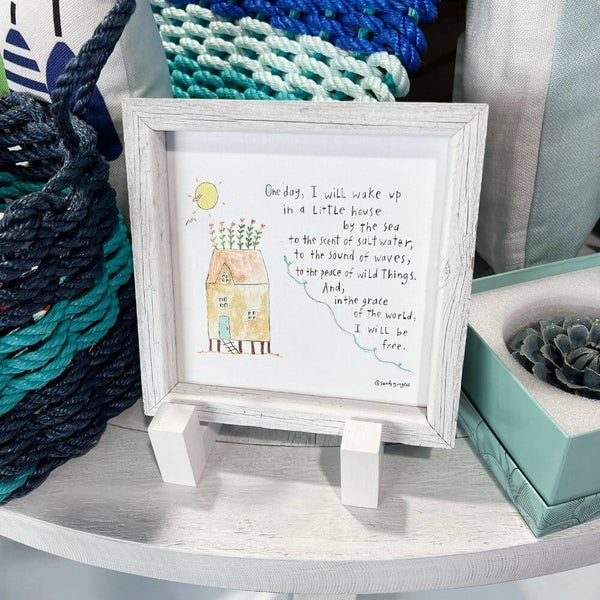 One day, I will wake up
in a Little house
by the sea
to the scent of saltwater,
to the sound of waves,
to the peace of wild Things.
And,
in the grace
of the world,
I will be
free.